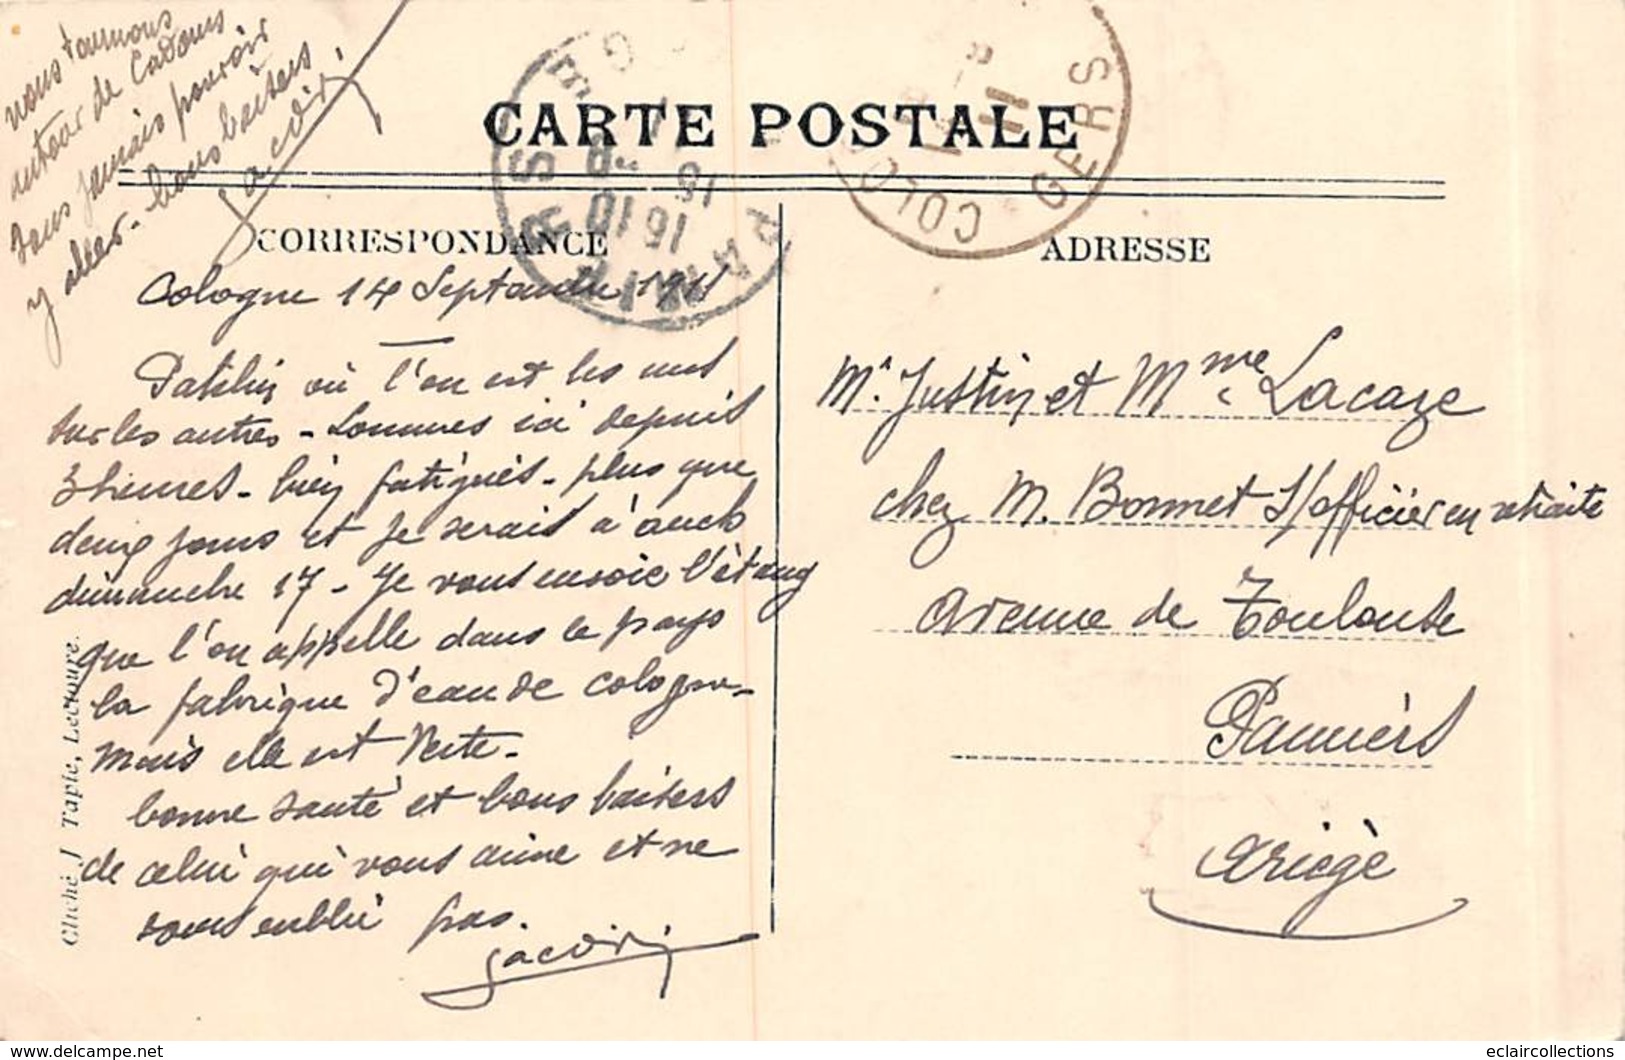 nous tournons
autour de Cadours
sans jamais pouvoir
y aller. bons baisers
CARTE POSTALE
COLOGNE
GERS
PAMIERS
15 10
CORRESPONDANCE
ADRESSE
Cologne 14 Septembre 1911
où l'on est les uns
sur les autres - Sommes ici depuis
3 heures - bien fatigués - plus que
deux jours et je serais à auch
dimanche 17 - Je vous ensoie l'étang
que l'on appelle dans le pays
la fabrique d'eau de cologne -
mais elle est Verte -
bonne santé et bons baisers
de celui qui vous aime et ne
vous oublie pas.
Mr. Justin et Mme Lacaze
chez M. Bonnet S/officier en retraite
Avenue de Toulouse
Pamiers
Ariège
Cliché J Tapie, Lectoure.
www.delcampe.net
eclaircollections